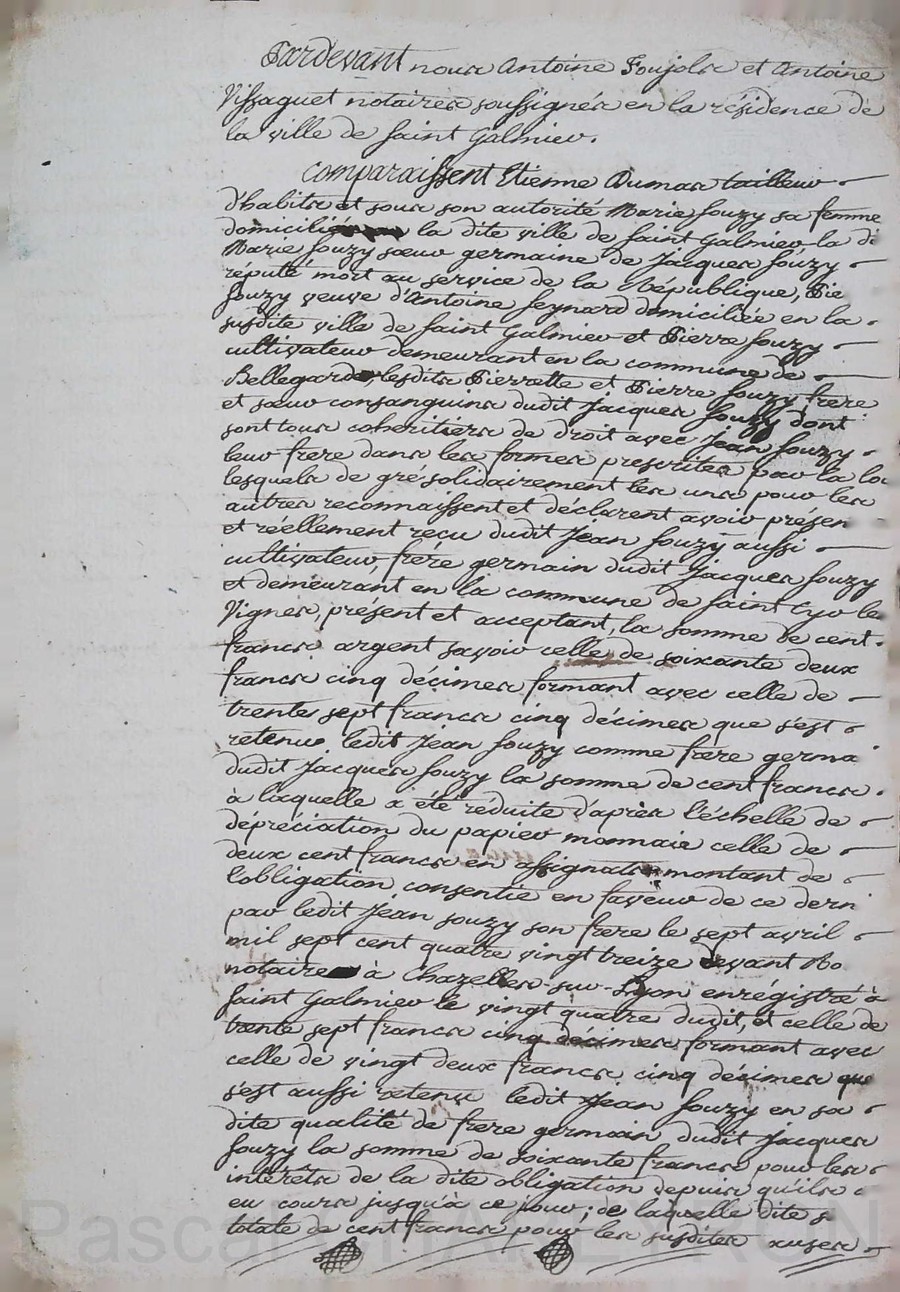 Pardevant nous Antoine Foujols et Antoine
Vissaguet notaires soussignés en la résidence de
la ville de Saint Galmier.
Comparaissent Etienne Dumas tailleur
d'habits et sous son autorité Marie Souzy sa femme
domiciliés la dite ville de Saint Galmier la d
Marie Souzy sœur germaine de Jacques Souzy
réputé mort au service de la République, Pie
Souzy veuve d'Antoine Seynard domiciliée en la
susdite ville de Saint Galmier et Pierre Souzy
cultivateur demeurant en la commune de
Bellegarde, lesdits Pierrette et Pierre Souzy frere
et sœur consanguins dudit Jacques Souzy dont
sont tous coheritiers de droit avec Jean Souzy
leur frere dans les formes prescrites par la loi
lesquels de gré solidairement les uns pour les
autres reconnaissent et déclarent avoir présen
et réellement reçu dudit Jean Souzy aussi
cultivateur, frère germain dudit Jacques Souzy
et demeurant en la commune de Saint Cyr les
Vignes, présent et acceptant, la somme de cent
francs argent savoir celle de soixante deux
francs cinq décimes formant avec celle de
trente sept francs cinq décimes que s'est
retenu ledit Jean Souzy comme frere germa
dudit Jacques Souzy la somme de cent francs
à laquelle a été réduite d'après l'échelle de
dépréciation du papier monnaie celle de
deux cent francs en assignats montant de
l'obligation consentie en faveur de ce derni
par ledit Jean Souzy son frere le sept avril
mil sept cent quatre vingt treize devant
notaire à Chazelles-sur-Lyon enrégistré à
Saint Galmier le vingt quatre dudit, et celle de
trente sept francs cinq décimes formant avec
celle de vingt deux francs cinq décimes que
s'est aussi retenu ledit Jean Souzy en sa
dite qualité de frere germain dudit Jacques
Souzy la somme de soixante francs pour les
intérêts de la dite obligation depuis qu'ils
eu cours jusqu'à ce jour; de laquelle dite s
totale de cent francs pour les susdites
Pascal CHAMEYRON